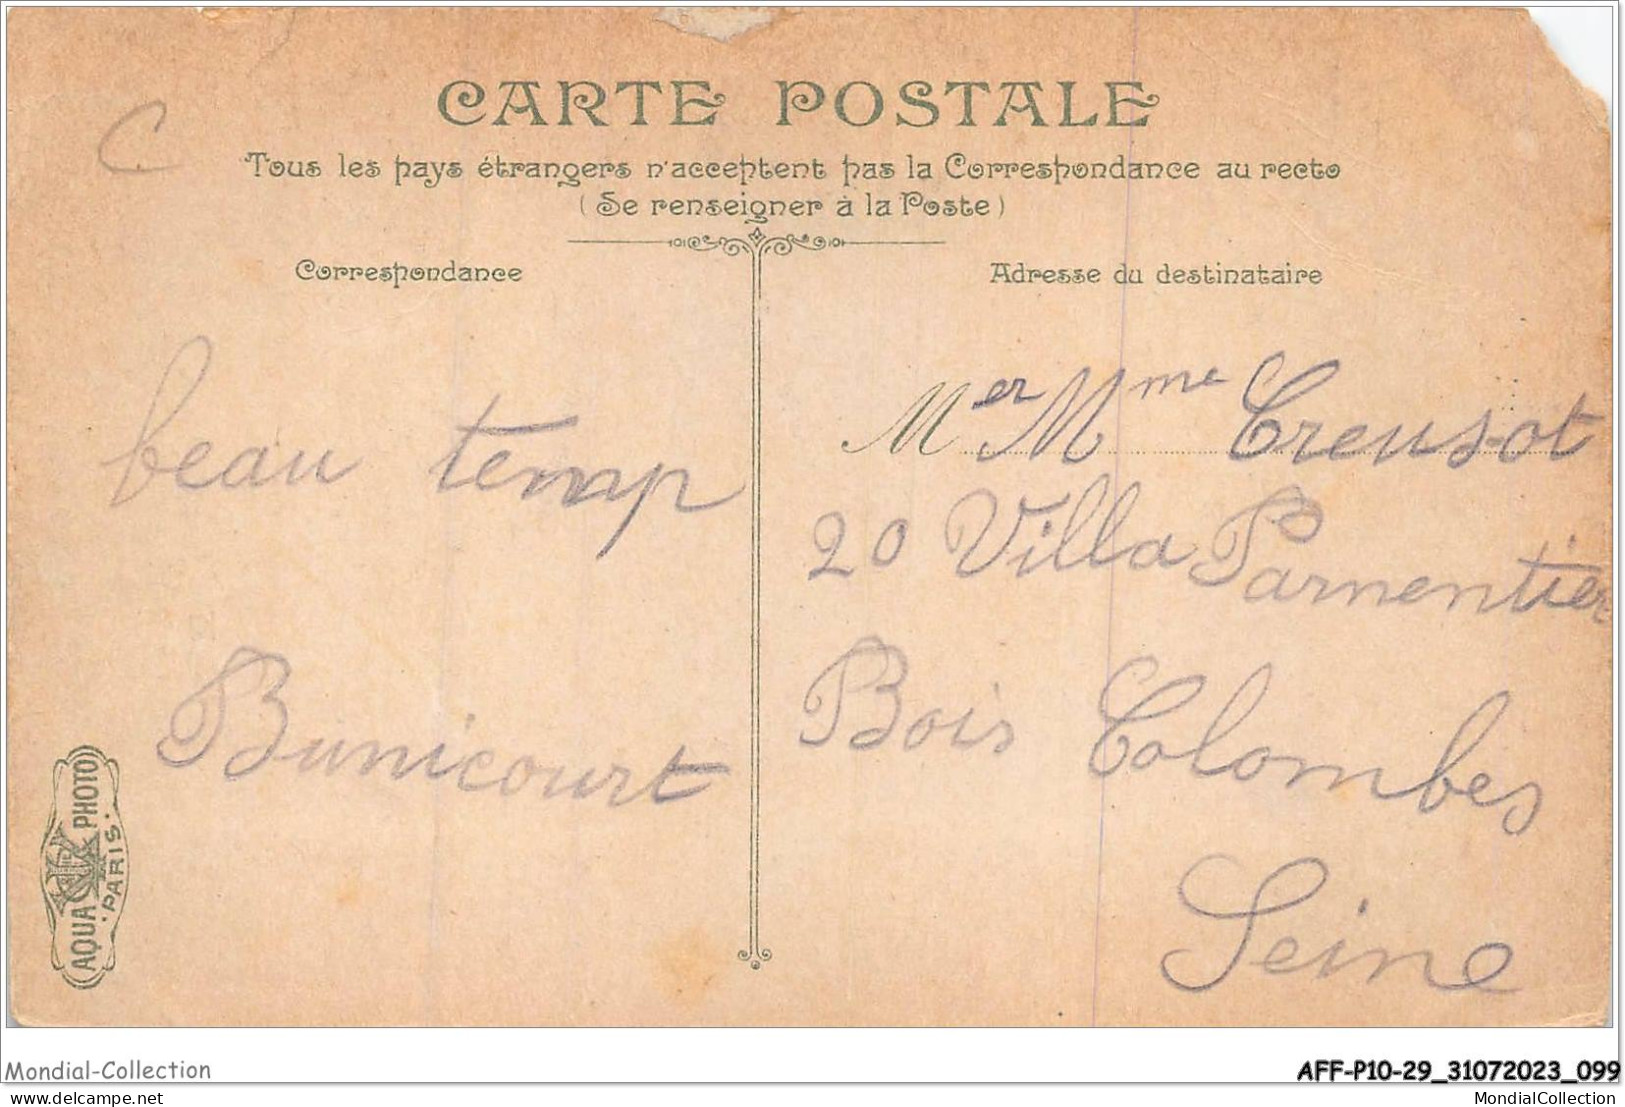 C
CARTE POSTALE
Tous les pays étrangers n'acceptent pas la Correspondance au recto
(Se renseigner à la Poste)
Correspondance
beau temp
Bunicourt
AQUA PHOTO
PARIS.
Adresse du destinataire
M er Mme Creusot
20 Villa Parmentier
Bois Colombes
Seine
Mondial-Collection
AFF-P10-29_31072023_099
delcampe.net
MondialCollection